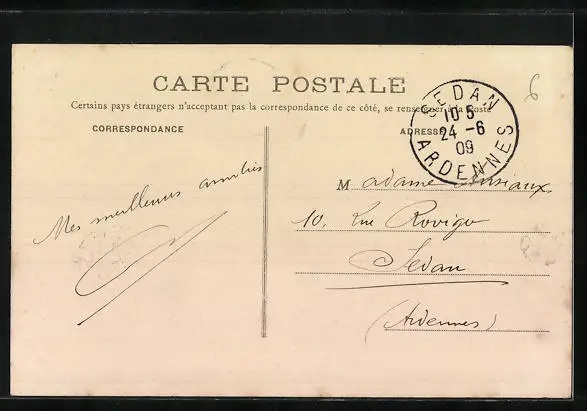 CARTE POSTALE
Certains pays étrangers n'acceptant pas la correspondance de ce côté, se renseigner à la Poste
CORRESPONDANCE
ADRESSE
SEDAN
10 5
24 -6
09
ARDENNES
6
Mes meilleures amitiés
Madame
10, Rue Rovigo
Sedan
(Ardennes)